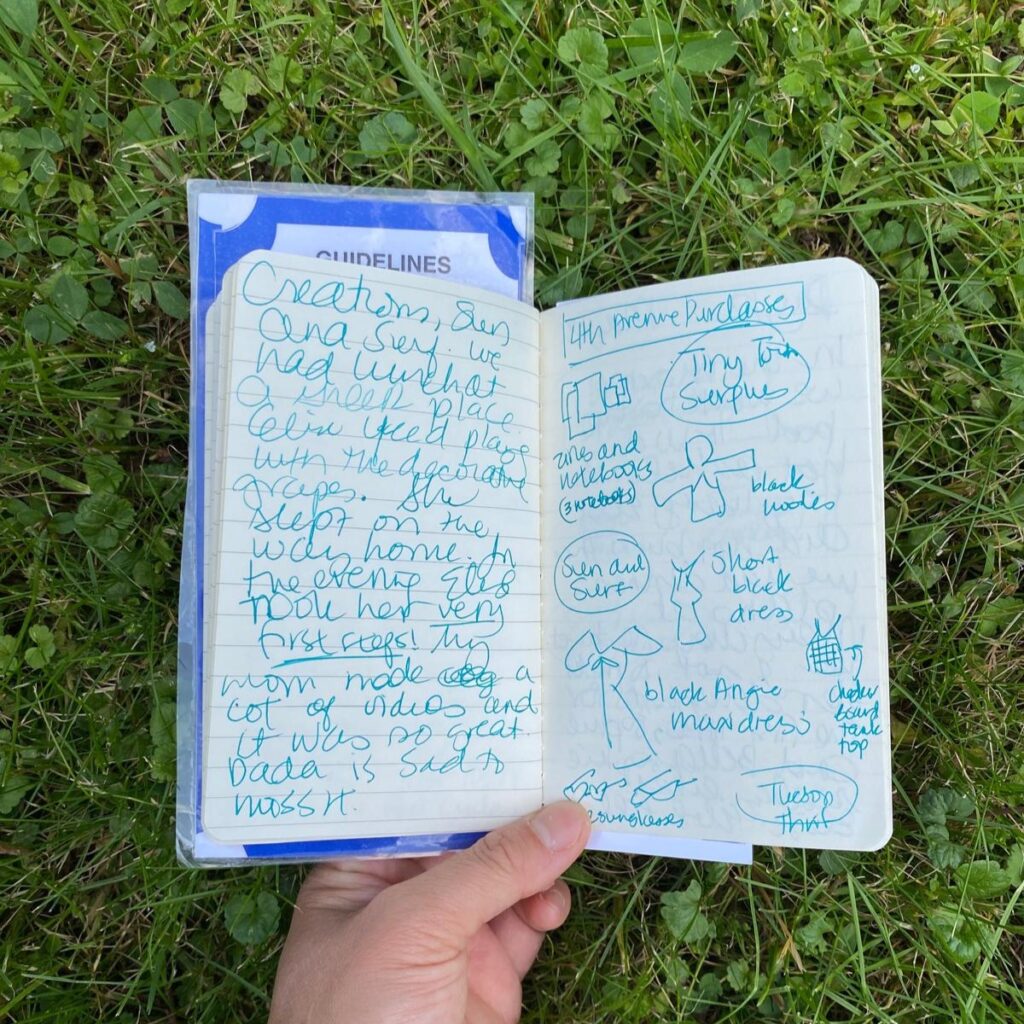 GUIDELINES
Creations, Sun
and Surf. We
had lunch at
a Greek place
liked playing
with the decorative
grapes. She
slept on the
way home. In
the evening Elise
took her very
first steps! My
mom made a
lot of videos and
it was so great.
Dada is sad to
miss it.
4th Avenue Purchases
Tiny Town
Surplus
zines and
notebooks
(3 notebooks)
black
Sun and
Surf
short
black
dress
black Angie
maxi dress
checker
board
tank
top
2 sunglasses
Tucson
Thrift